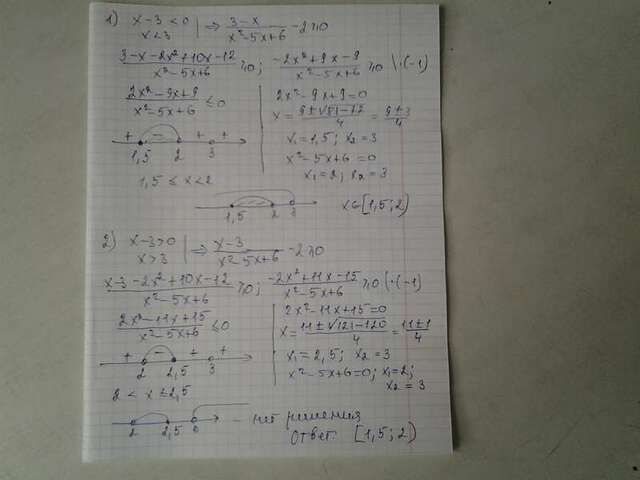 1) x-3<0 | ⇒ 3-x/x²-5x+6 -2≥0
x<3
3-x-2x²+10x-12/x²-5x+6 ≥0; -2x²+9x-9/x²-5x+6 ≥0 |·(-1)
2x²-9x+9/x²-5x+6 ≤0
2x²-9x+9=0
x=9±√81-72/4=9±3/4
+ - + +
1,5 2 3
x₁=1,5; x₂=3
x²-5x+6=0
x₁=2; x₂=3
1,5≤x<2
1,5 2 3
x∈[1,5;2)
2) x-3>0 | ⇒ x-3/x²-5x+6 -2≥0
x>3
x-3-2x²+10x-12/x²-5x+6 ≥0; -2x²+11x-15/x²-5x+6 ≥0 |·(-1)
2x²-11x+15/x²-5x+6 ≤0
2x²-11x+15=0
x=11±√121-120/4=11±1/4
+ - + +
2 2,5 3
x₁=2,5; x₂=3
x²-5x+6=0; x₁=2;
x₂=3
2<x≤2,5
2 2,5 3 - нет решения
Ответ [1,5;2)